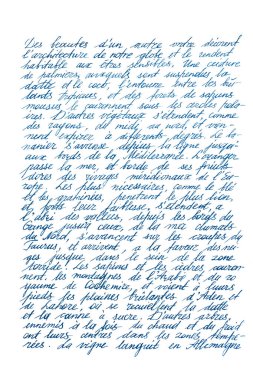 Des beautés d'un autre ordre décorent
l'architecture de notre globe et le rendent
habitable aux êtres sensibles. Une ceinture
de palmiers, auxquels sont suspendus la
datte et le coco, l'entoure entre les brû-
lants tropiques, et des forêts de sapins
mousseux le couronnent sous les cercles polai-
res. D'autres végétaux s'étendent, comme
des rayons, du midi au nord, et vien-
nent expirer à différents degrés. Le ba-
nanier s'avance depuis la ligne jusqu'
aux bords de la Méditerranée. L'oranger
passe la mer, et borde de ses fruits
dorés des rivages méridionaux de l'Eu-
rope. Les plus nécessaires, comme le blé
et les graminées, pénètrent le plus loin,
et, forts leur faiblesse, s'étendent, à
l'abri des vallées, depuis les bords du
Gange jusqu'à ceux de la mer
du Nord, s'avancent sur les croupes du
Taurus, et arrivent, à la faveur des nei-
ges jusque dans le sein de la zone
torride. Les sapins et les cèdres couron-
nent les montagnes de l'Arabie et du ro-
yaume de Cachemire, et voient à leurs
pieds les plaines brûlantes d'Aden et
de Lahore, où se recueillent la datte
et la canne à sucre. D'autres arbres,
ennemis à la fois du chaud et du froid
ont leurs centres dans les zones tempé-
rées. La vigne languit en Allemagne